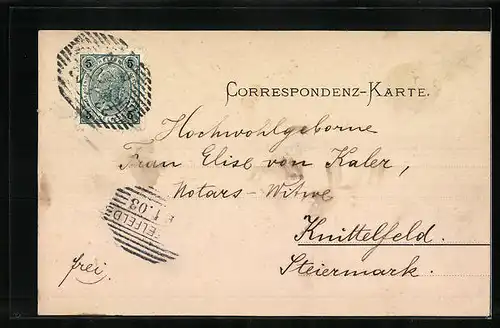 5 5
5 5
CORRESPONDENZ-KARTE.
Hochwohlgeborne
Frau Elise von Kaler,
Notars-Witwe
ELFELD
1.03
Knittelfeld.
Steiermark.
frei.